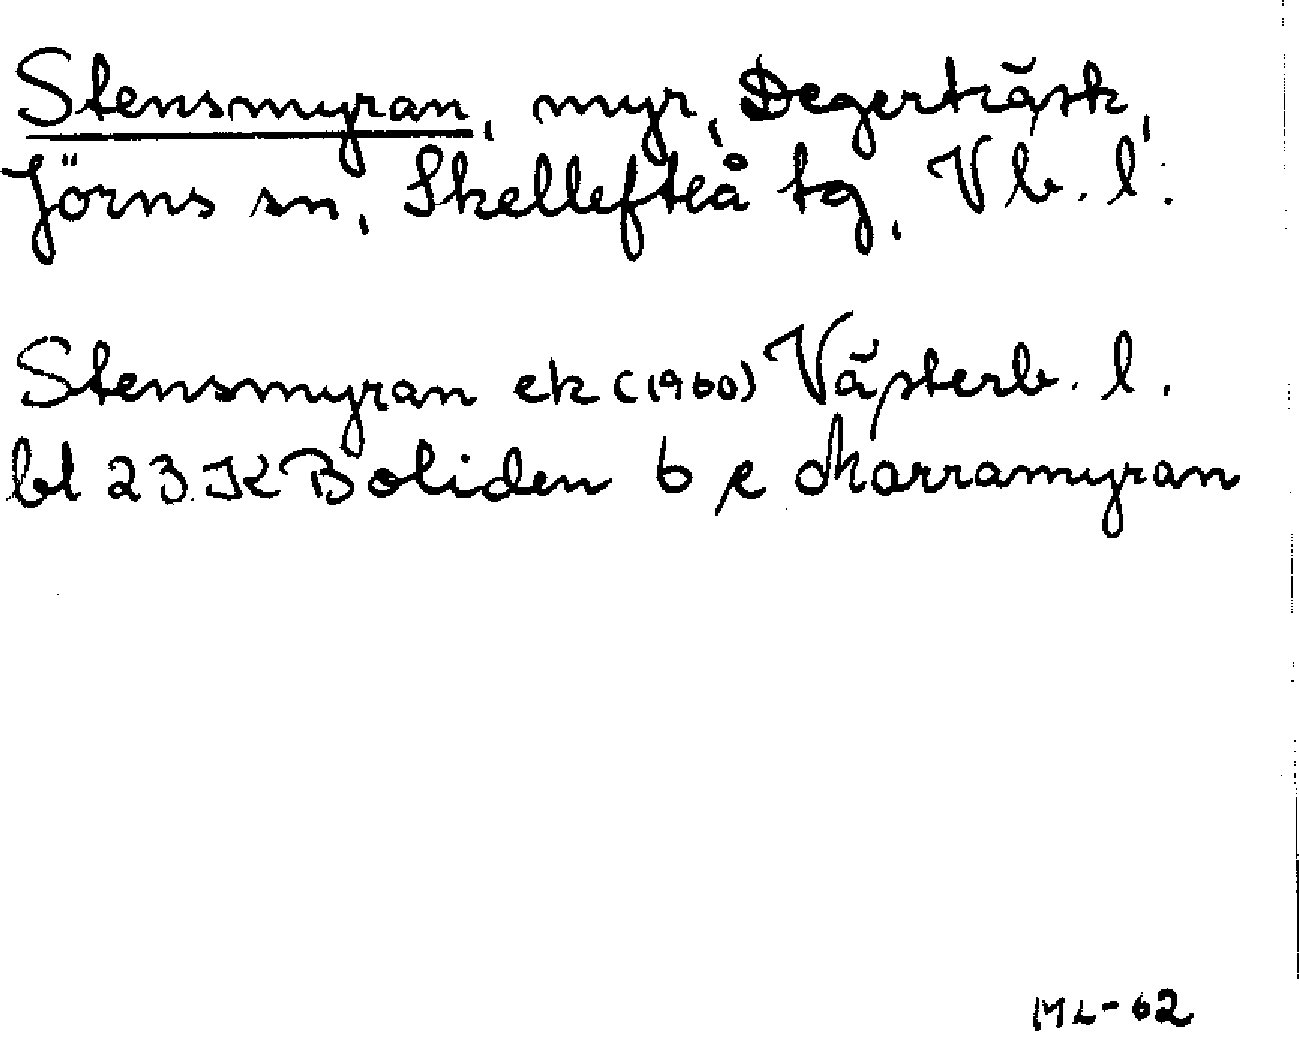 Stensmyran, myr, Degerträsk,
Jörns sn, Skellefteå tg, Vb. l.
Stensmyran ek (1960) Västerb. l.
bl 23 K Boliden 6 e Morramyran
ML-62